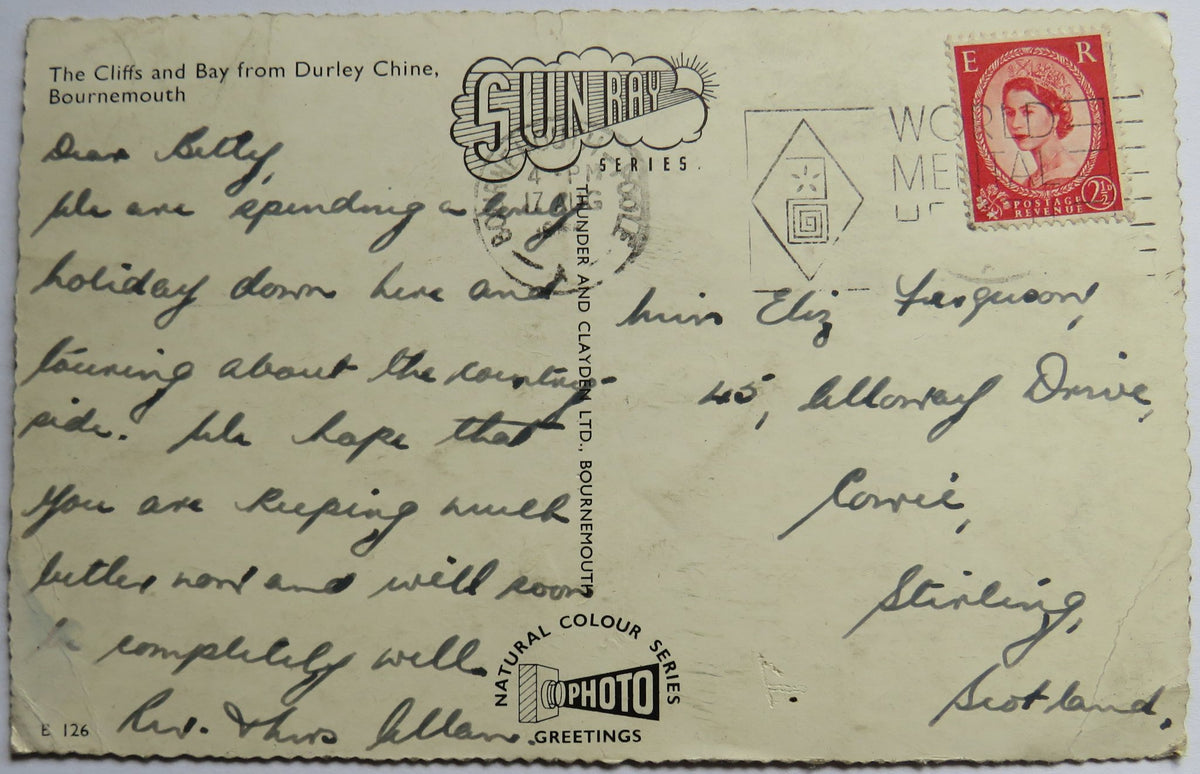 The Cliffs and Bay from Durley Chine,
Bournemouth
SUN RAY
SERIES.
E R
POSTAGE
REVENUE
2½D
WORLD
ME
BOURNEMOUTH POOLE
PM
17
Dear Betty,
We are spending a lovely
holiday down here and
touring about the country-
side. We hope that
you are keeping much
better now and will soon
be completely well
Rev. & Mrs Allan.
THUNDER AND CLAYDEN LTD., BOURNEMOUTH
Miss Eliz Ferguson,
45, Alloway Drive,
Cowie,
Stirling,
Scotland.
NATURAL COLOUR SERIES
PHOTO
GREETINGS
E 126